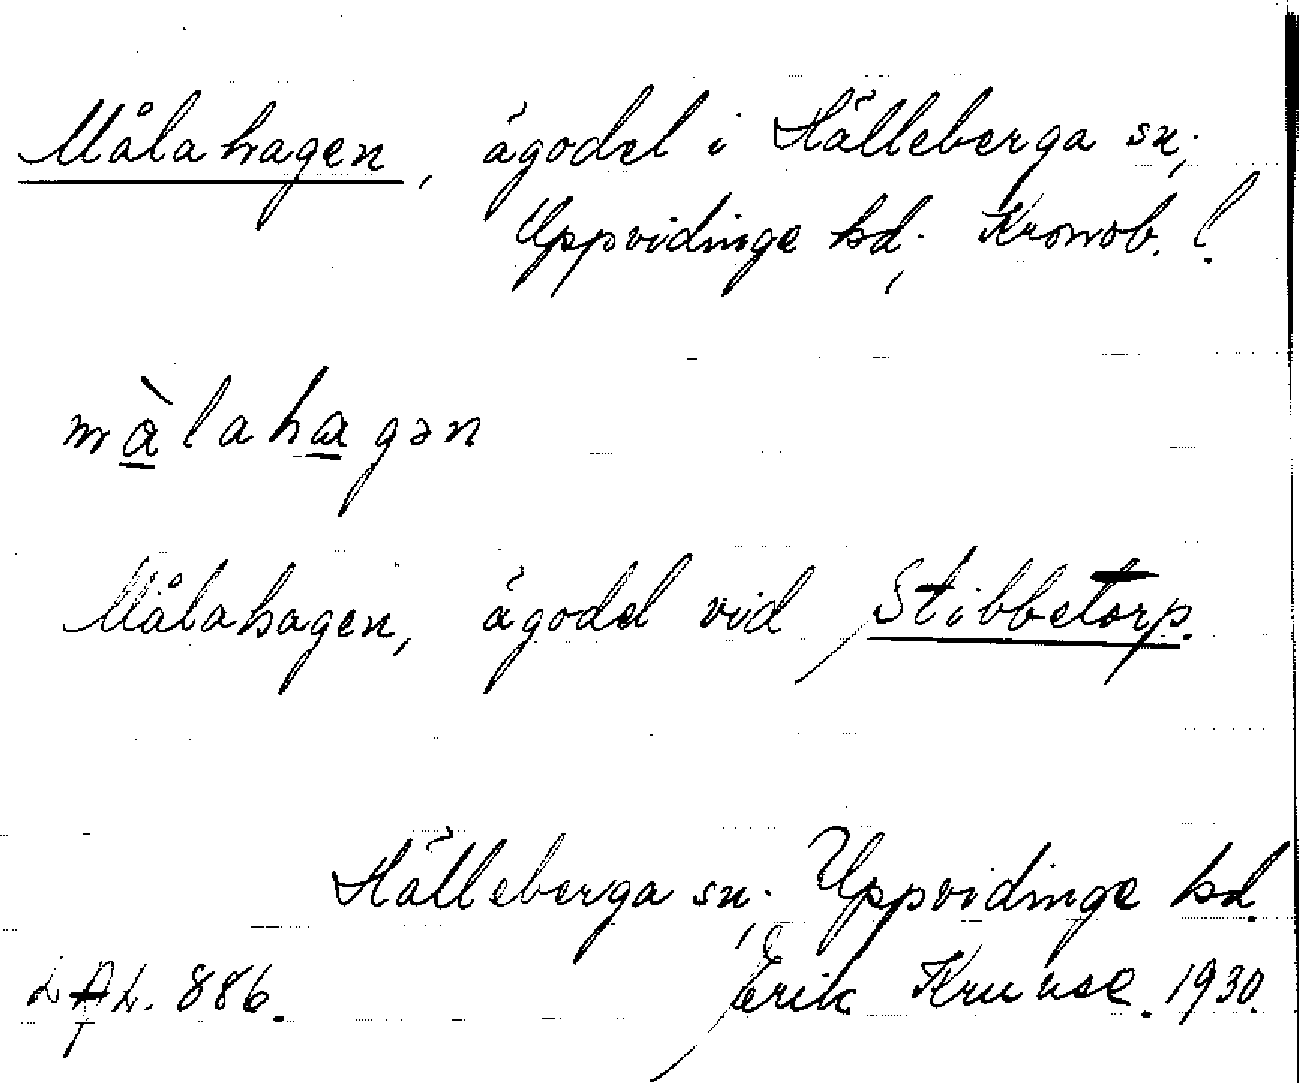 Målahagen, ägodel i Hälleberga sn;
Uppvidinge hd; Kronob. l.
màlahagən
Målahagen, ägodel vid Stibbetorp.
Hälleberga sn; Uppvidinge hd.
LAL. 886. Erik Kruuse. 1930.